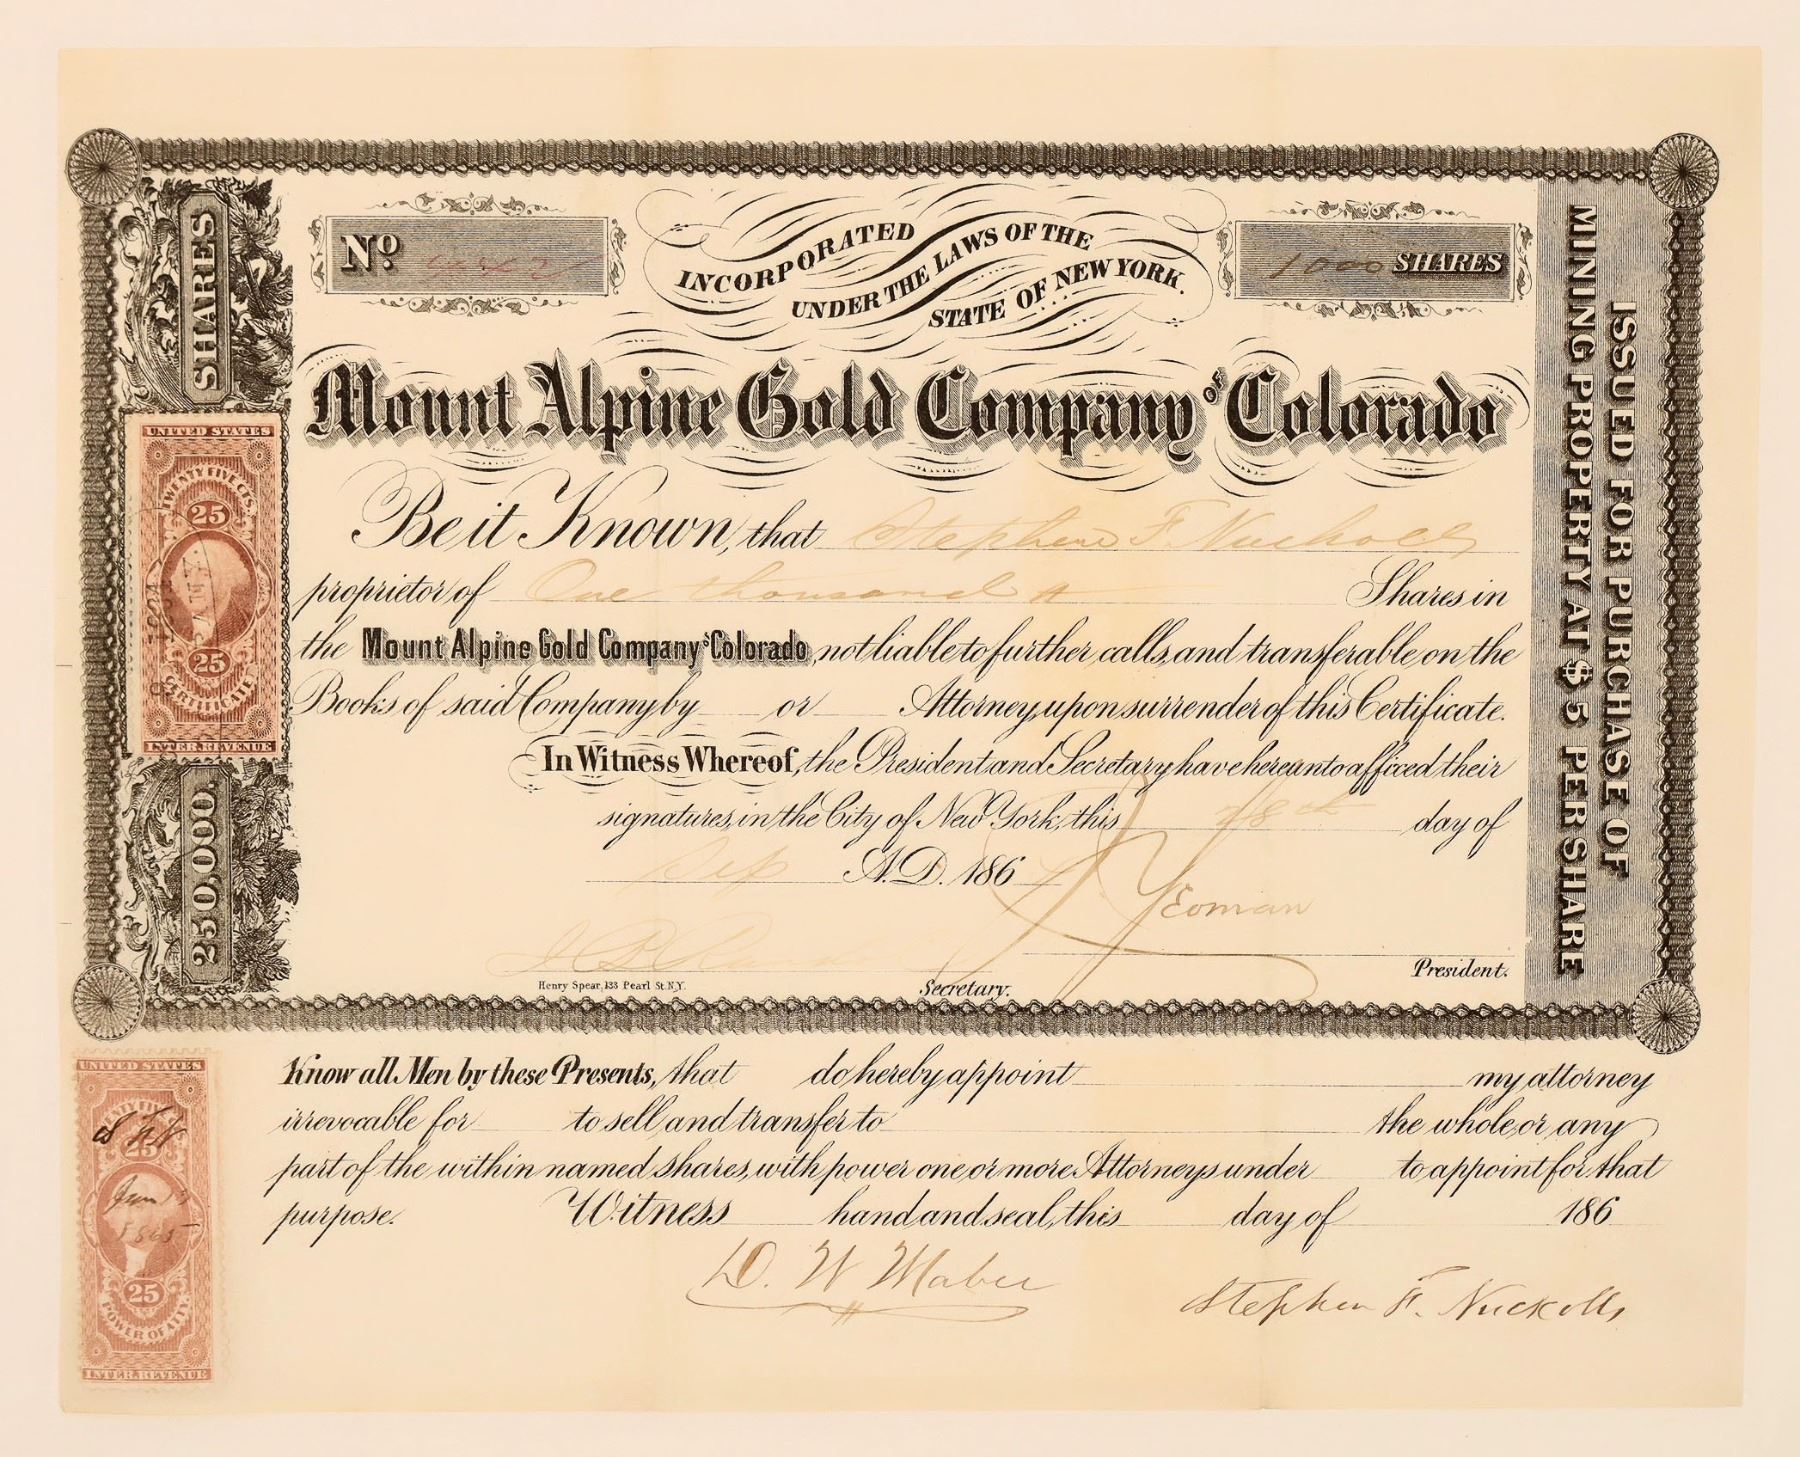 Nº
INCORPORATED
UNDER THE LAWS OF THE
STATE OF NEW YORK.
1000 SHARES
Mount Alpine Gold Company of Colorado
Be it Known, that Stephen F. Nuckolls
proprietor of One thousand Shares in
the Mount Alpine Gold Company of Colorado, not liable to further calls, and transferable on the
Books of said Company by or Attorney, upon surrender of this Certificate.
In Witness Whereof, the President and Secretary have hereunto affixed their
signatures, in the City of New York, this 28th day of
Sep A.D. 186
Yeoman
President.
Secretary.
Henry Spear, 133 Pearl St. N.Y.
SHARES
250,000.
ISSUED FOR PURCHASE OF
MINING PROPERTY AT $5 PER SHARE
UNITED STATES
TWENTY FIVE CTS.
25
25
CERTIFICATE
INTER. REVENUE
Know all Men by these Presents, that do hereby appoint my attorney
irrevocable for to sell and transfer to the whole, or any
part of the within named shares, with power one or more Attorneys under to appoint for that
purpose. Witness hand and seal, this day of 186
D. W. Maber
Stephen F. Nuckolls
UNITED STATES
TWENTY FIVE CTS.
25
Jan
1865
25
POWER OF AT'Y.
INTER. REVENUE